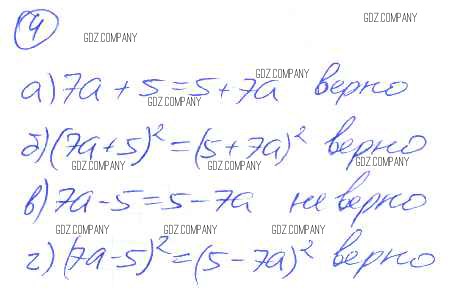 4
GDZ.COMPANY
GDZ.COMPANY
GDZ.COMPANY
а) 7a + 5 = 5 + 7a верно
GDZ.COMPANY
б) (7a + 5)² = (5 + 7a)² верно
GDZ.COMPANY GDZ.COMPANY GDZ.COMPANY
в) 7a - 5 = 5 - 7a не верно
GDZ.COMPANY GDZ.COMPANY GDZ.COMPANY
г) (7a - 5)² = (5 - 7a)² верно